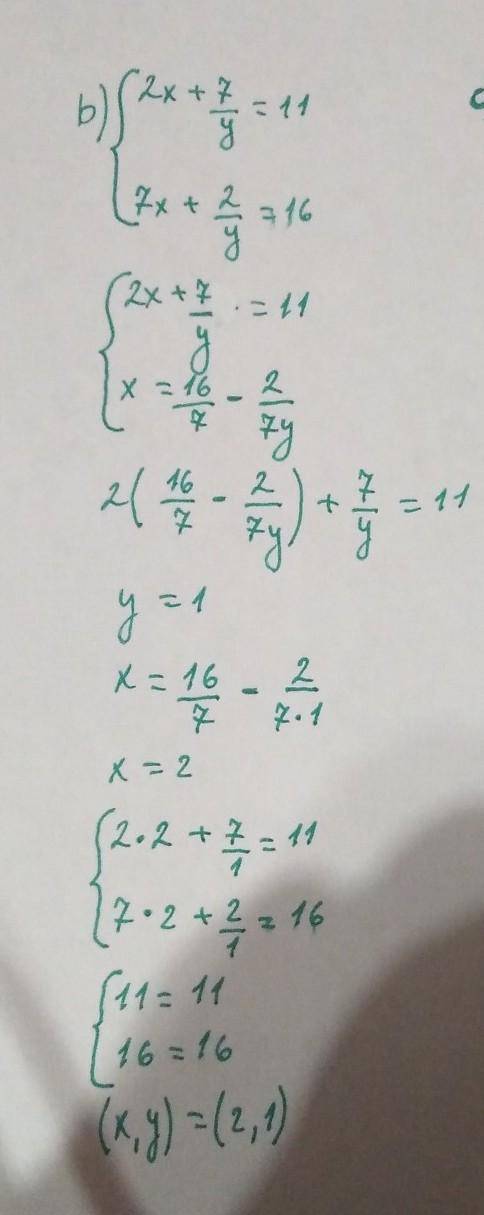 b) { 2x + 7/y = 11
7x + 2/y = 16
{ 2x + 7/y · = 11
x = 16/7 - 2/7y
2( 16/7 - 2/7y ) + 7/y = 11
y = 1
x = 16/7 - 2/7·1
x = 2
{ 2·2 + 7/1 = 11
7·2 + 2/1 = 16
{ 11 = 11
16 = 16
(x,y) = (2,1)